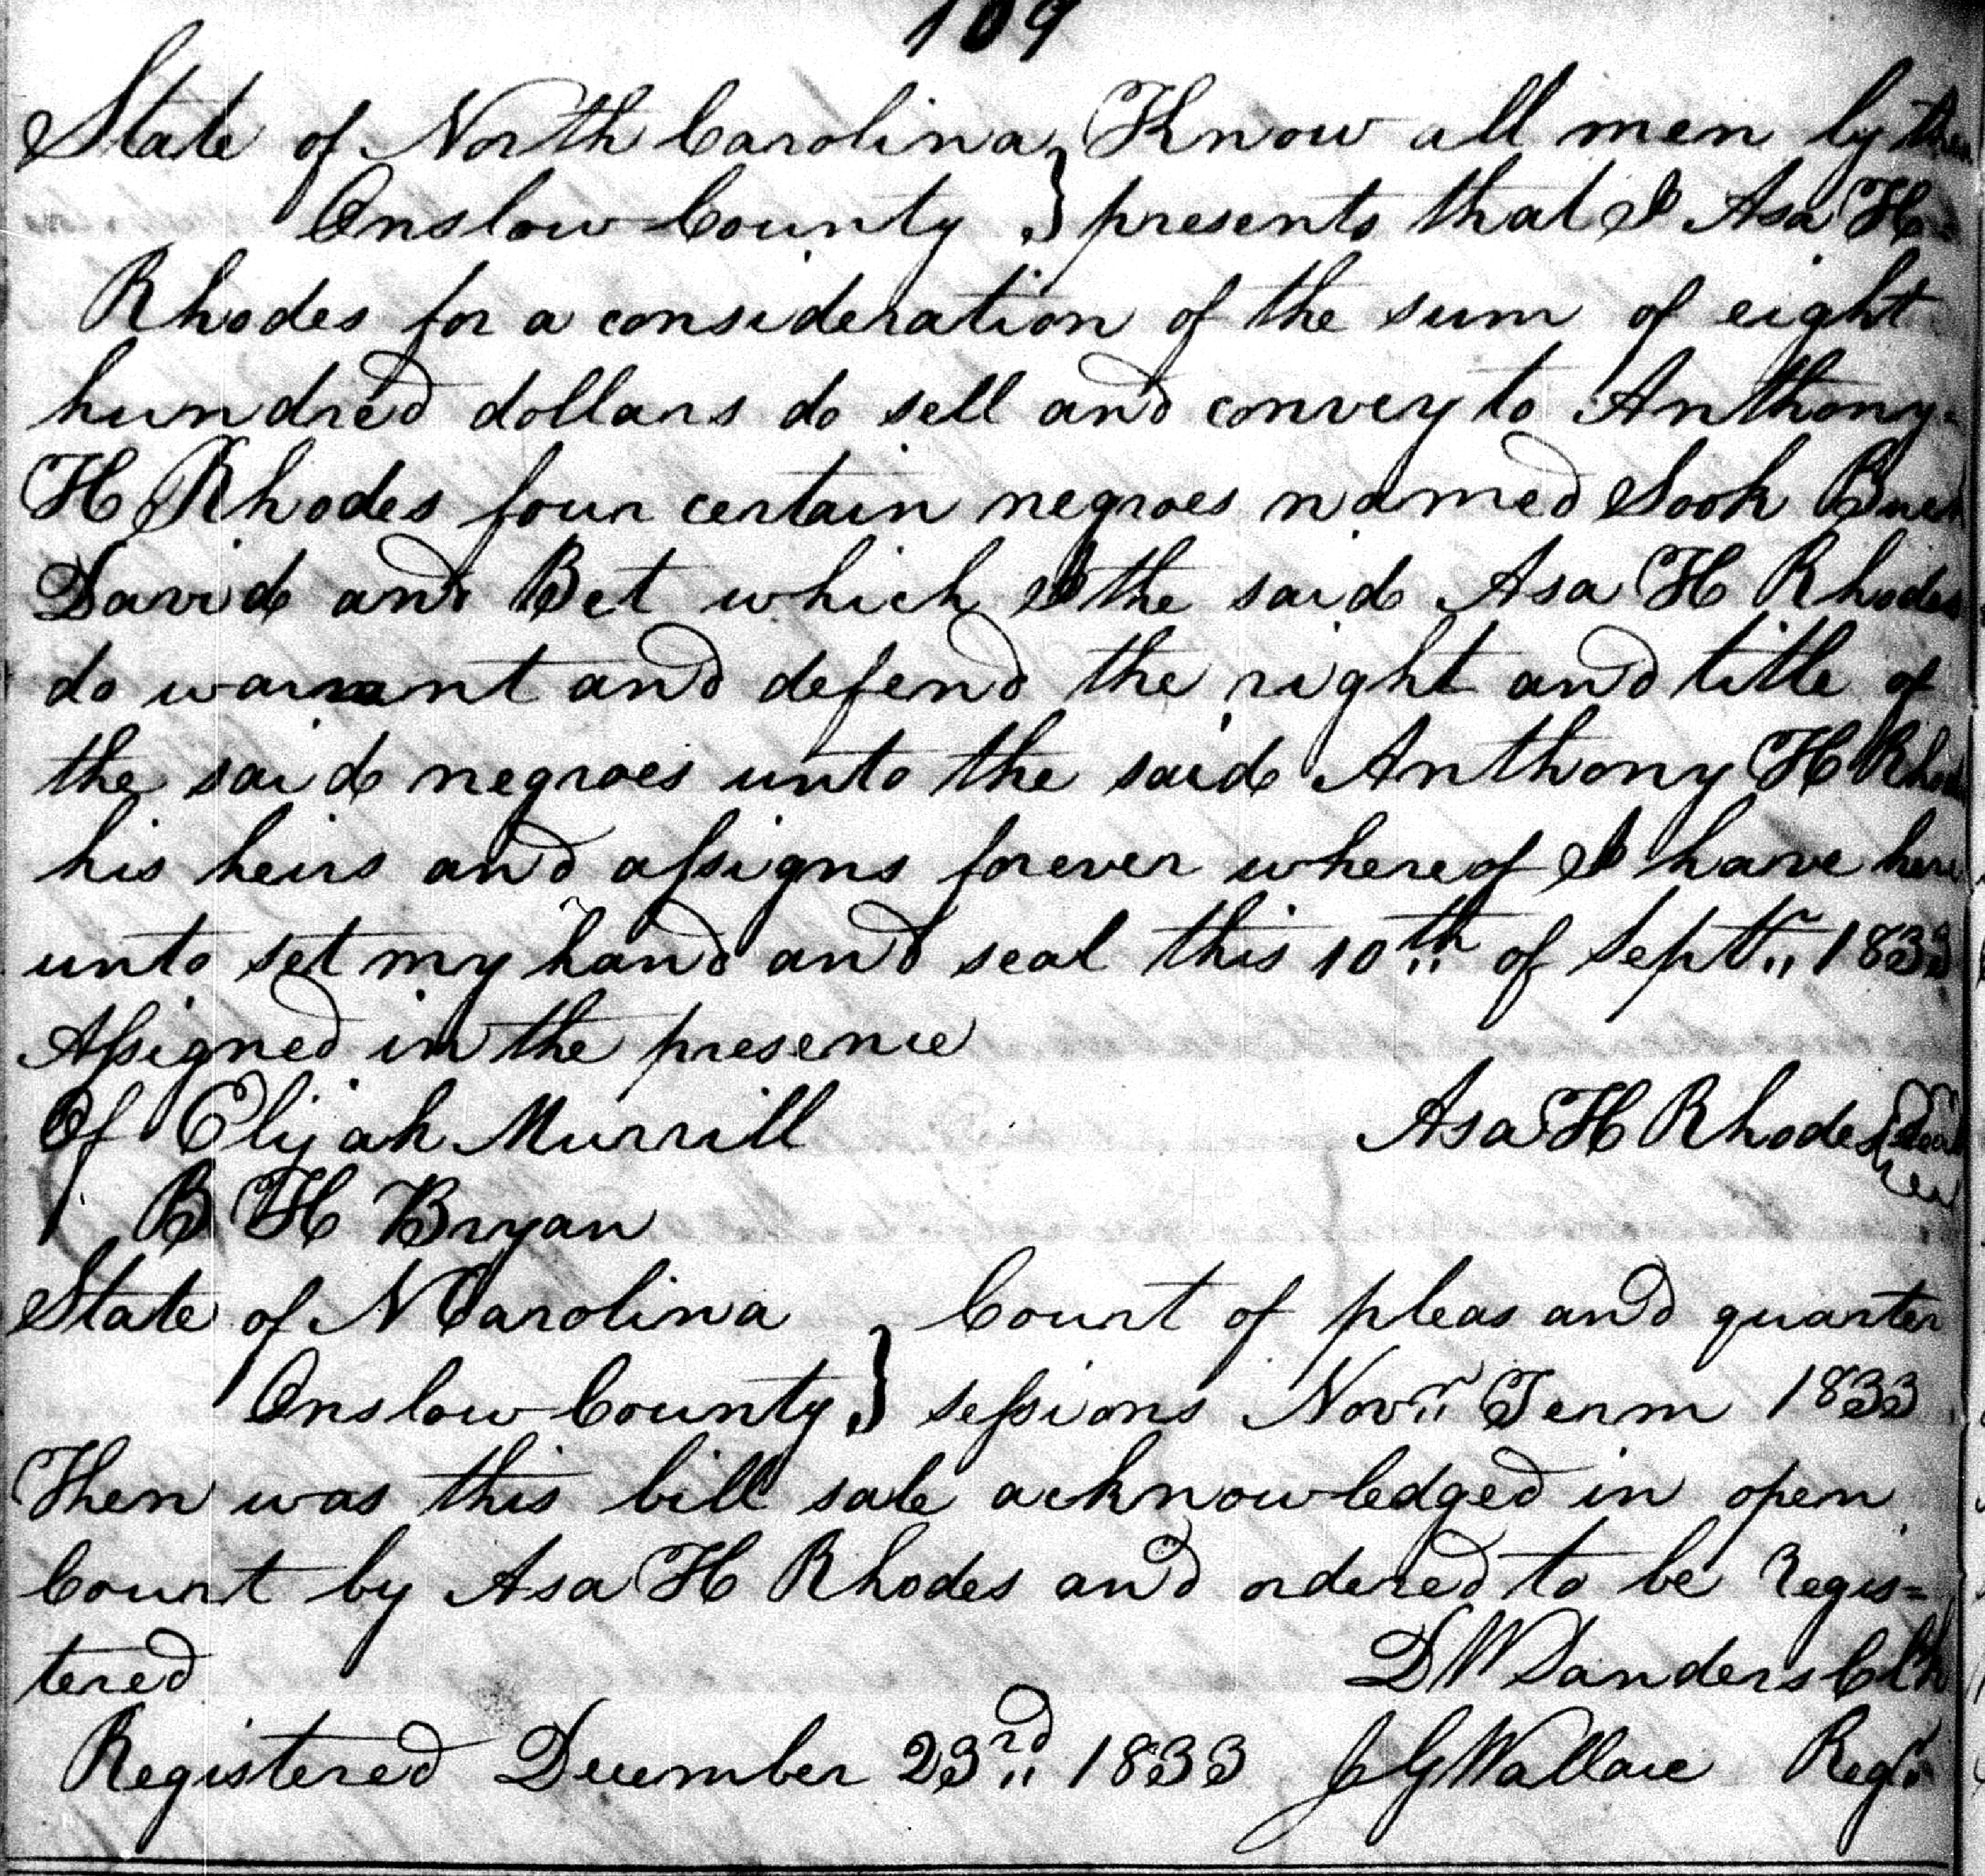 109
State of North Carolina } Know all men by these
Onslow County } presents that I Asa H
Rhodes for a consideration of the sum of eight
hundred dollars do sell and convey to Anthony
H Rhodes four certain negroes named Sook
David and Bet which I the said Asa H Rhodes
do warrant and defend the right and title of
the said negroes unto the said Anthony H Rhodes
his heirs and assigns forever whereof I have here
unto set my hand and seal this 10th of Septr 1833
Assigned in the presence
Of Elijah Murrill Asa H Rhodes {Seal}
B H Bryan
State of N Carolina } Court of pleas and quarter
Onslow County } sessions Novr Term 1833
Then was this bill sale acknowledged in open
Court by Asa H Rhodes and ordered to be regis=
tered D W Sanders Clk
Registered December 23rd 1833 J G Wallace Regr